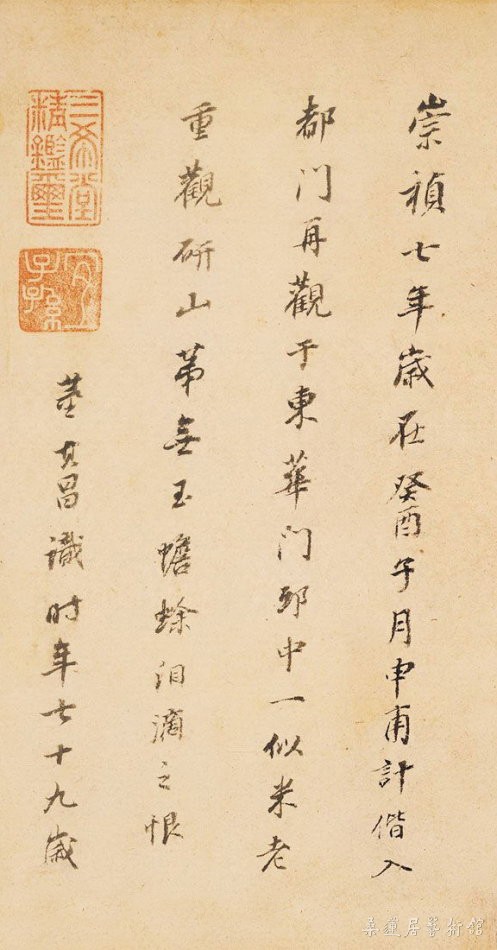 崇禎七年歲在癸酉子月申甫計偕入
都门再觀于東華门邸中一似米老
重觀研山苐無玉蟾蜍泪滴之恨
董其昌識时年七十九歲
三希堂精鑑璽
宜子孫
桑蓮居藝術館